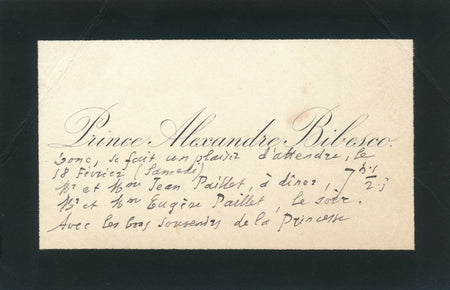 Prince Alexandre Bibesco.
donc, se fait un plaisir d'attendre, le
18 Février (Samedi)
Mr et Mme Jean Paillet, à dîner, 7 h. 1/2;
Mr et Mme Eugène Paillet, le soir.
Avec les bons souvenirs de la Princesse